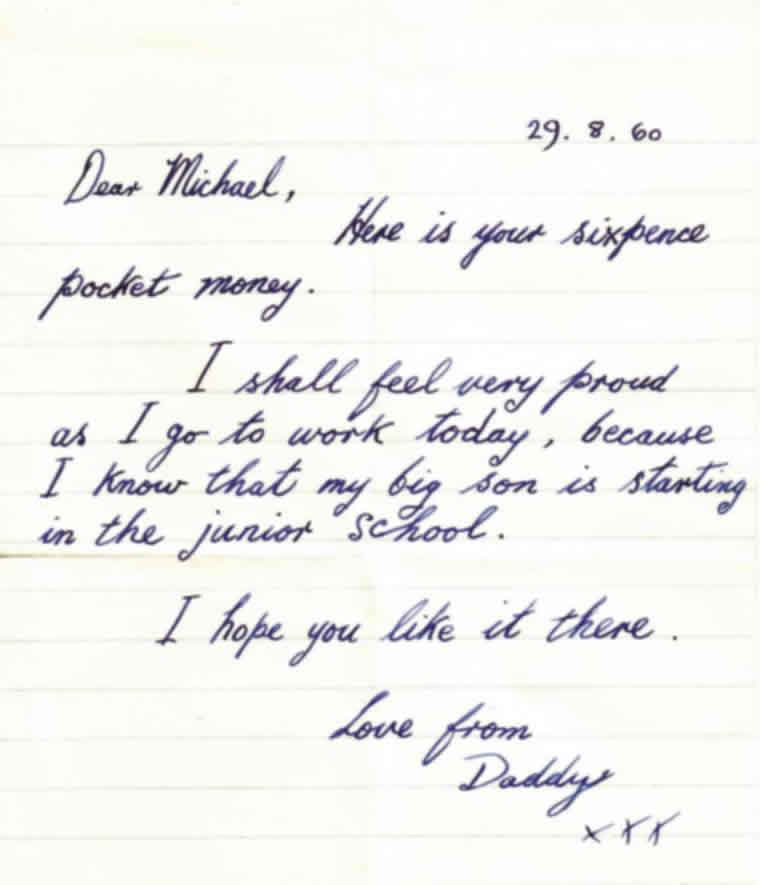 29. 8. 60
Dear Michael,
Here is your sixpence
pocket money.
I shall feel very proud
as I go to work today, because
I know that my big son is starting
in the junior school.
I hope you like it there.
Love from
Daddy
xxx